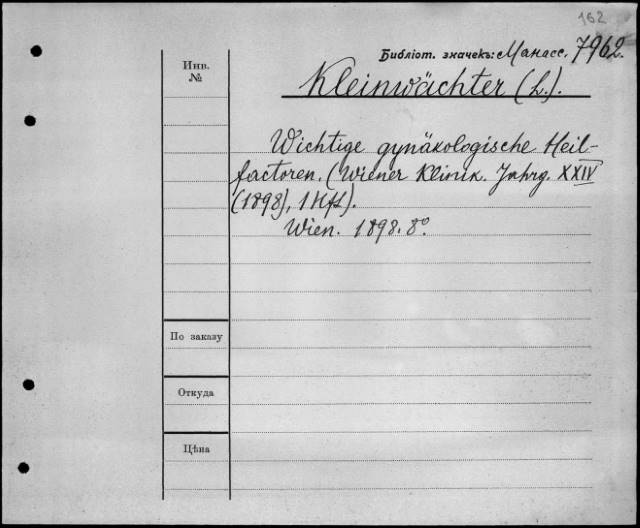 162
Библіот. значекъ: Манасс. 7962.
Инв.
№
Kleinwächter (L.).
Wichtige gynäkologische Heil-
factoren. (Wiener Klinik. Jahrg. XXIV
(1898), 1 Hft).
Wien. 1898. 8º.
По заказу
Откуда
Цѣна